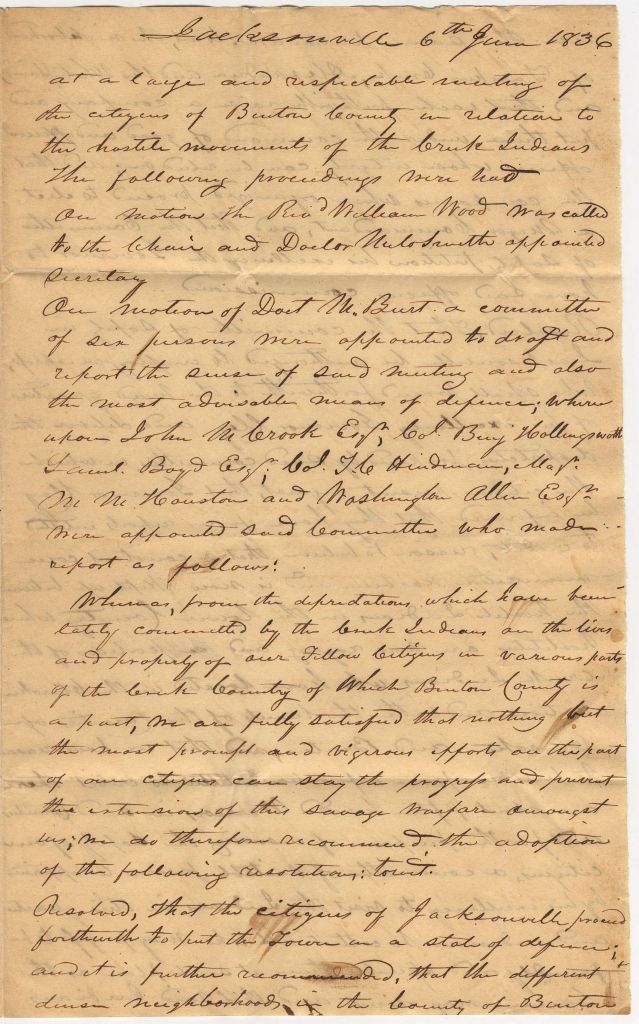 Jacksonville 6th June 1836
at a large and respectable meeting of
the citizens of Benton County in relation to
the hostile movements of the Creek Indians
The following proceedings were had
On motion the Revd William Wood was called
to the Chair and Doctor Milo Smith appointed
Secretary
On motion of Doct M. Burt a committee
of six persons were appointed to draft and
report the sense of said meeting and also
the most advisable means of defence; where
upon John M Crook Esqr, Col. Benj Hollingsworth
Saml. Boyd Esqr; Col. T. C Hindman, Majr.
M M. Houston and Washington Allen Esqr
were appointed said Committee who made
report as follows:
Whereas, from the depredations which have been
lately committed by the Creek Indians on the lives
and property of our Fellow Citizens in various parts
of the Creek Country of Which Benton County is
a part, we are fully satisfied that nothing but
the most prompt and vigerous efforts on the part
of our citizens can stay the progress and prevent
the extension of this savage warfare amongst
us; we do therefore recommend the adoption
of the following resolutions: towit.
Resolved, That the citizens of Jacksonville proceed
forthwith to put the Town in a state of defence;
and it is further recommended, that the different
dense neighborhoods in the County of Benton